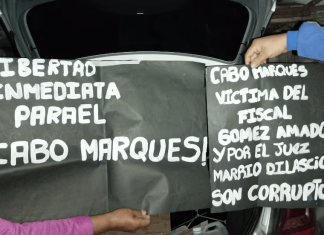 LIBERTAD
INMEDIATA
PARAEL
CABO MARQUES!
CABO MARQUES
VICTIMA DEL
FISCAL
GOMEZ AMADO
Y POR EL JUEZ
MARRIO DILASCIO
SON CORRUPTO